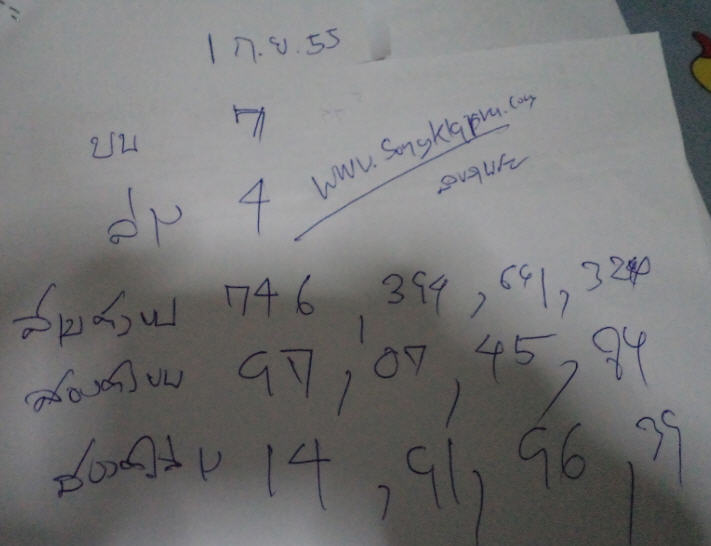 1 ก.ย. 55
บน 7
ล่าง 4
www.Songkhapra.com
สงขลาพระ
สามตัวบน 746, 394, 641, 324
สองตัวบน 97, 07, 45, 84
สองตัวล่าง 14, 91, 96, 39